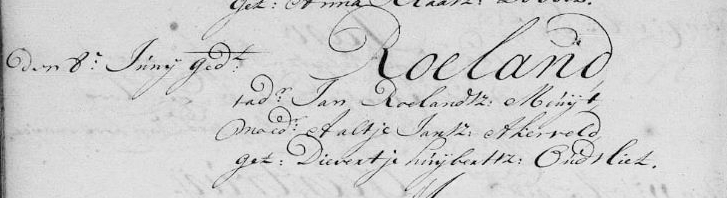 get: Anna Klaasz:
den 8: Junij ged:t Roeland
vad:r Jan Roelandtz: Meuijt
moed:r Aaltje Jansz: Akerveld
get: Dievertje huijbertsz: Oudtliet.